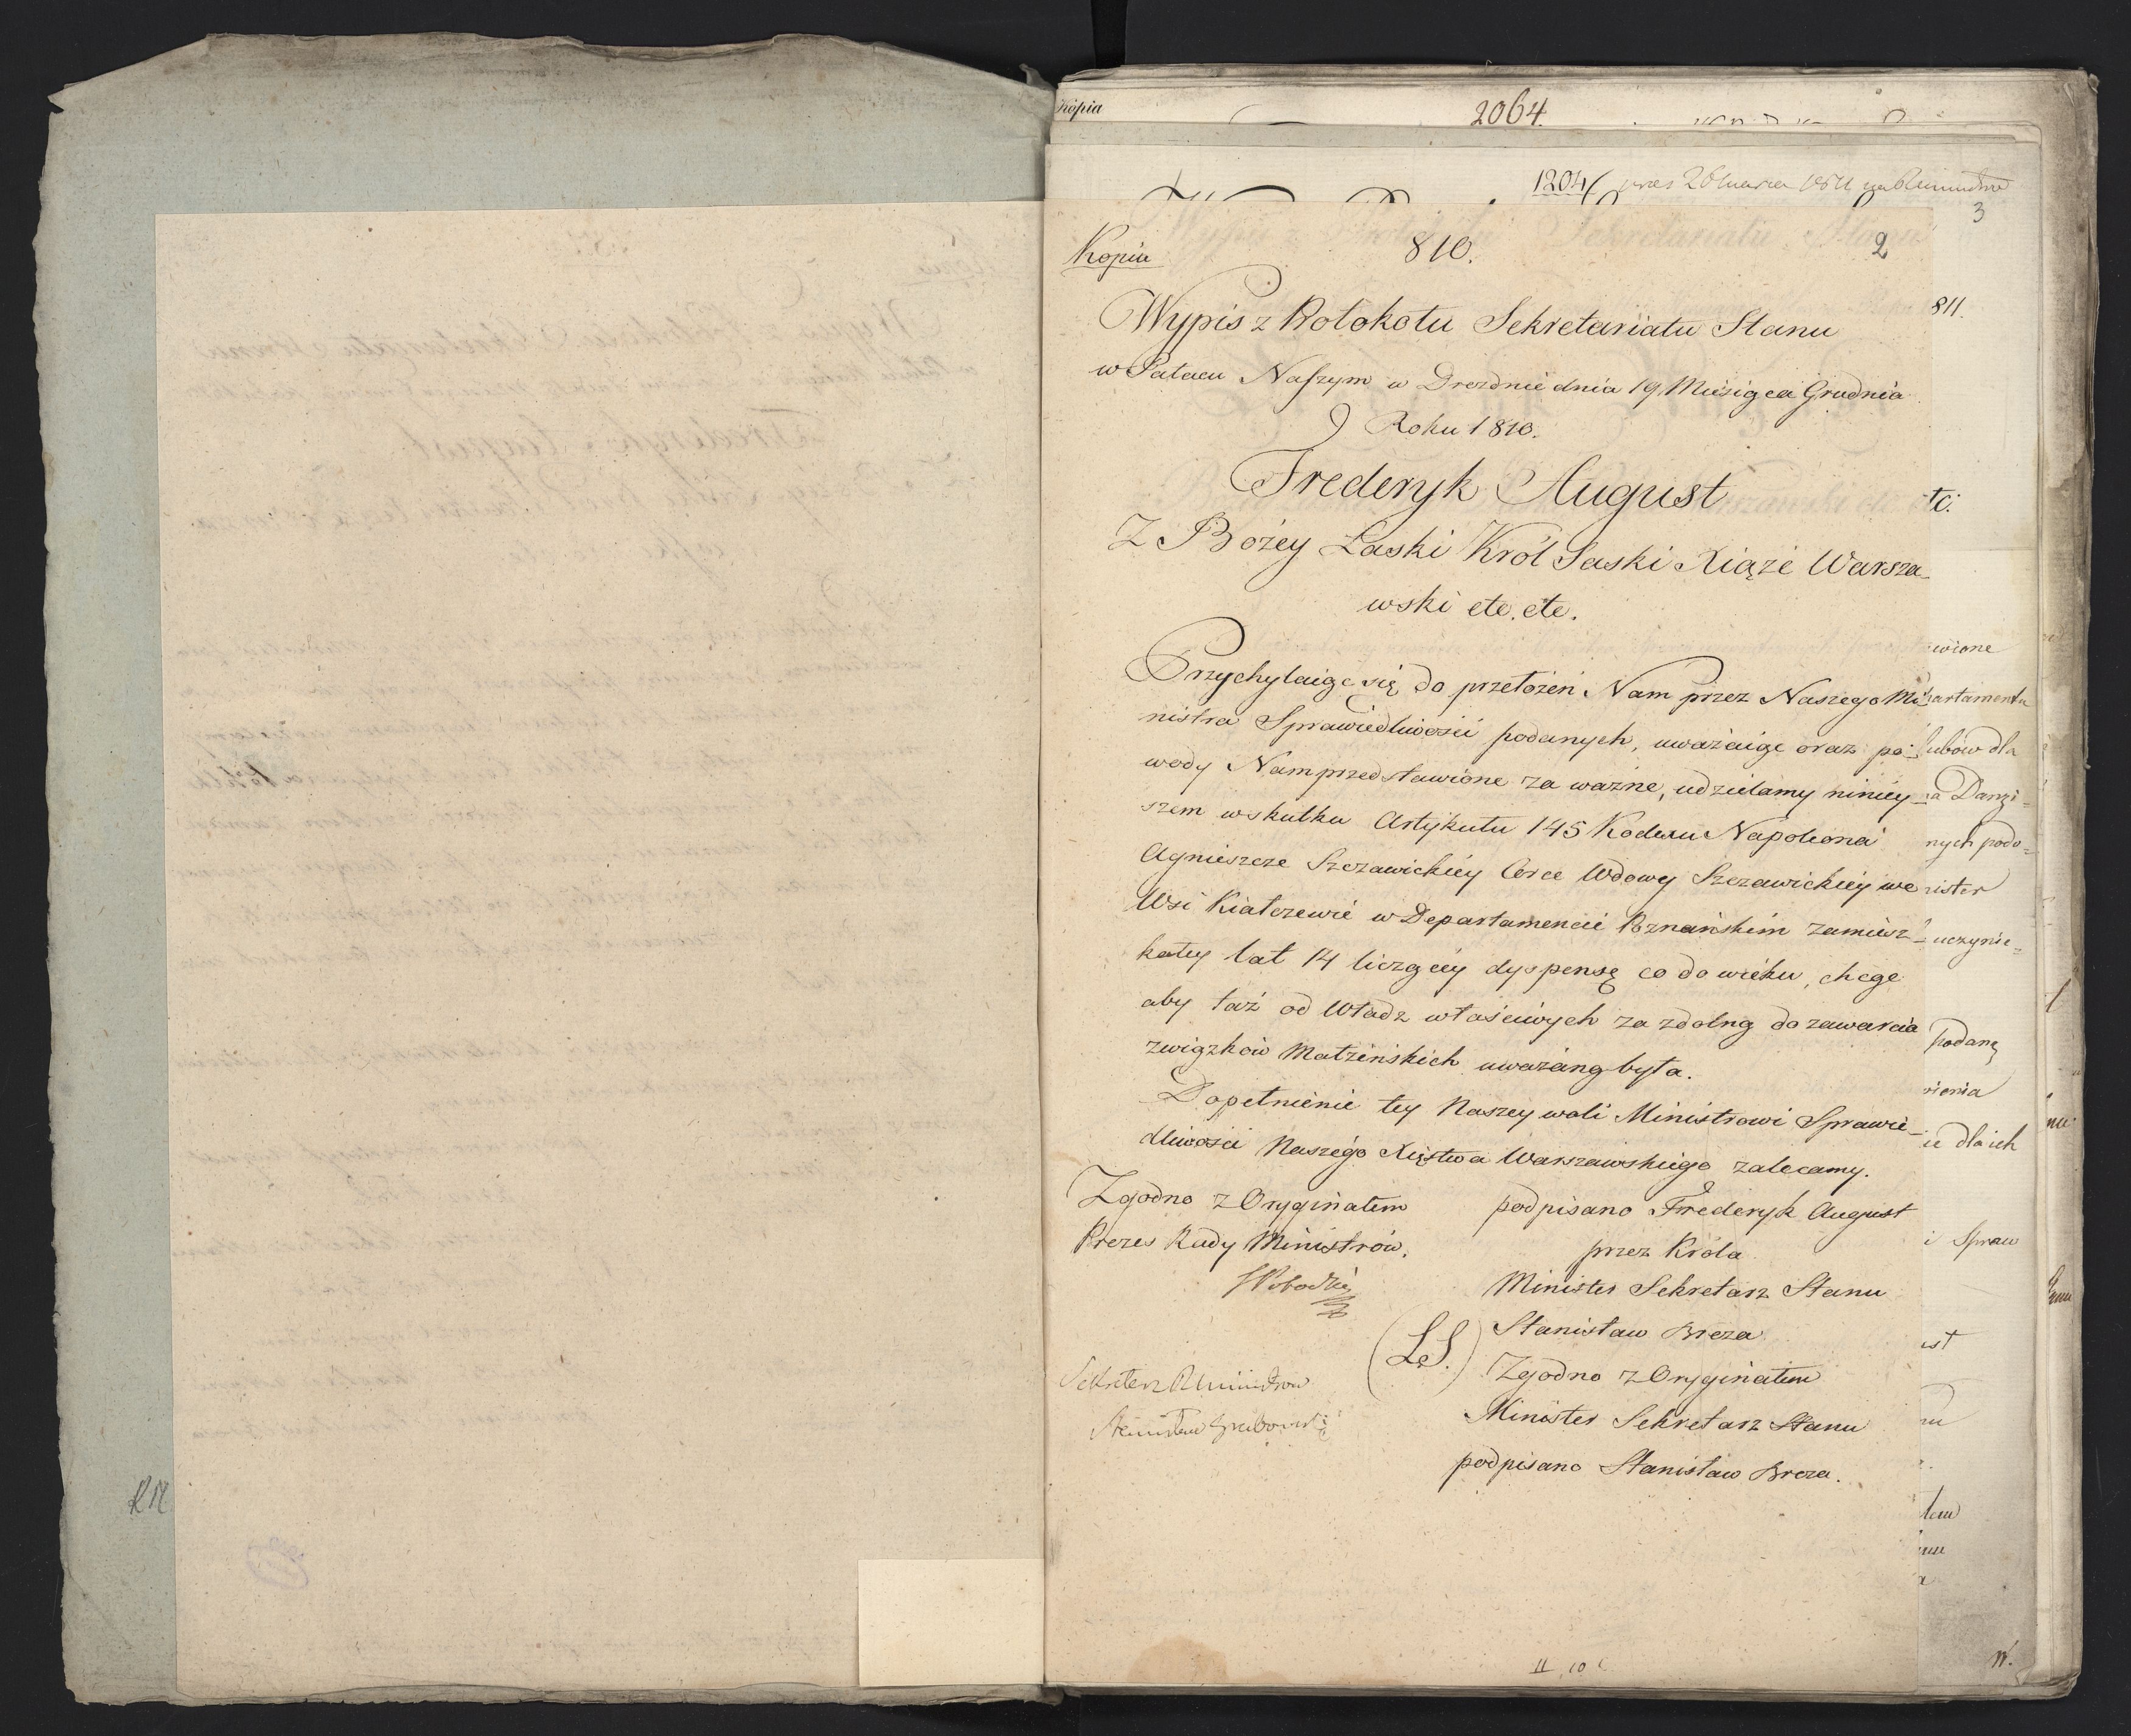 Kopia
2064.
1204
3
Kopia 810. 2
Wypis z Protokołu Sekretariatu Stanu
w Pałacu Naszym w Dreznie dnia 19 Miesiąca Grudnia
Roku 1810.
Frederyk August
Z Bożey Łaski Król Saski Xiąże Warsza-
wski etc. etc.
Przychylaiąc się do przełożeń Nam przez Naszego Mi-
nistra Sprawiedliwości podanych, uważaiąc oraz po-
wody Nam przedstawione za ważne, udzielamy niniey-
szem w skutku Artykułu 145 Kodexu Napoleona
Agnieszce Szczawickiey Corce Wdowy Szczawickiey we
Wsi Kiałczewie w Departamencie Poznańskim zamiesz-
kałey lat 14 liczącey dyspensę co do wieku, chcąc
aby taż od Władz właściwych za zdolną do zawarcia
związków Małżeńskich uważaną była.
Dopełnienie tey Naszey woli Ministrowi Sprawie-
dliwości Naszégo Xięstwa Warszawskiego zalecamy.
Zgodno z Oryginałem podpisano Frederyk August
Prezes Rady Ministrów. przez Króla
Minister Sekretarz Stanu
(L.S.) Stanisław Breza
Zgodno z Oryginałem
Sekretarz R Ministrow
Minister Sekretarz Stanu
Stanisław Grabowski
podpisano Stanisław Breza.
811.
tc.
wione
partamentu
lubów dla
na Danzi=
nych podo=
nister
uczynie=
podanę
nienia
ie dla ich
i Spraw
ust
nu
łem
RM